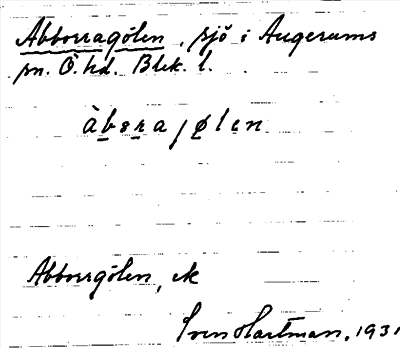 Abborragölen, sjö i Augerums
sn. Ö. hd. Blek. l.
àbera/ølen
Abborrgölen, ek
Sven Hartman, 1931